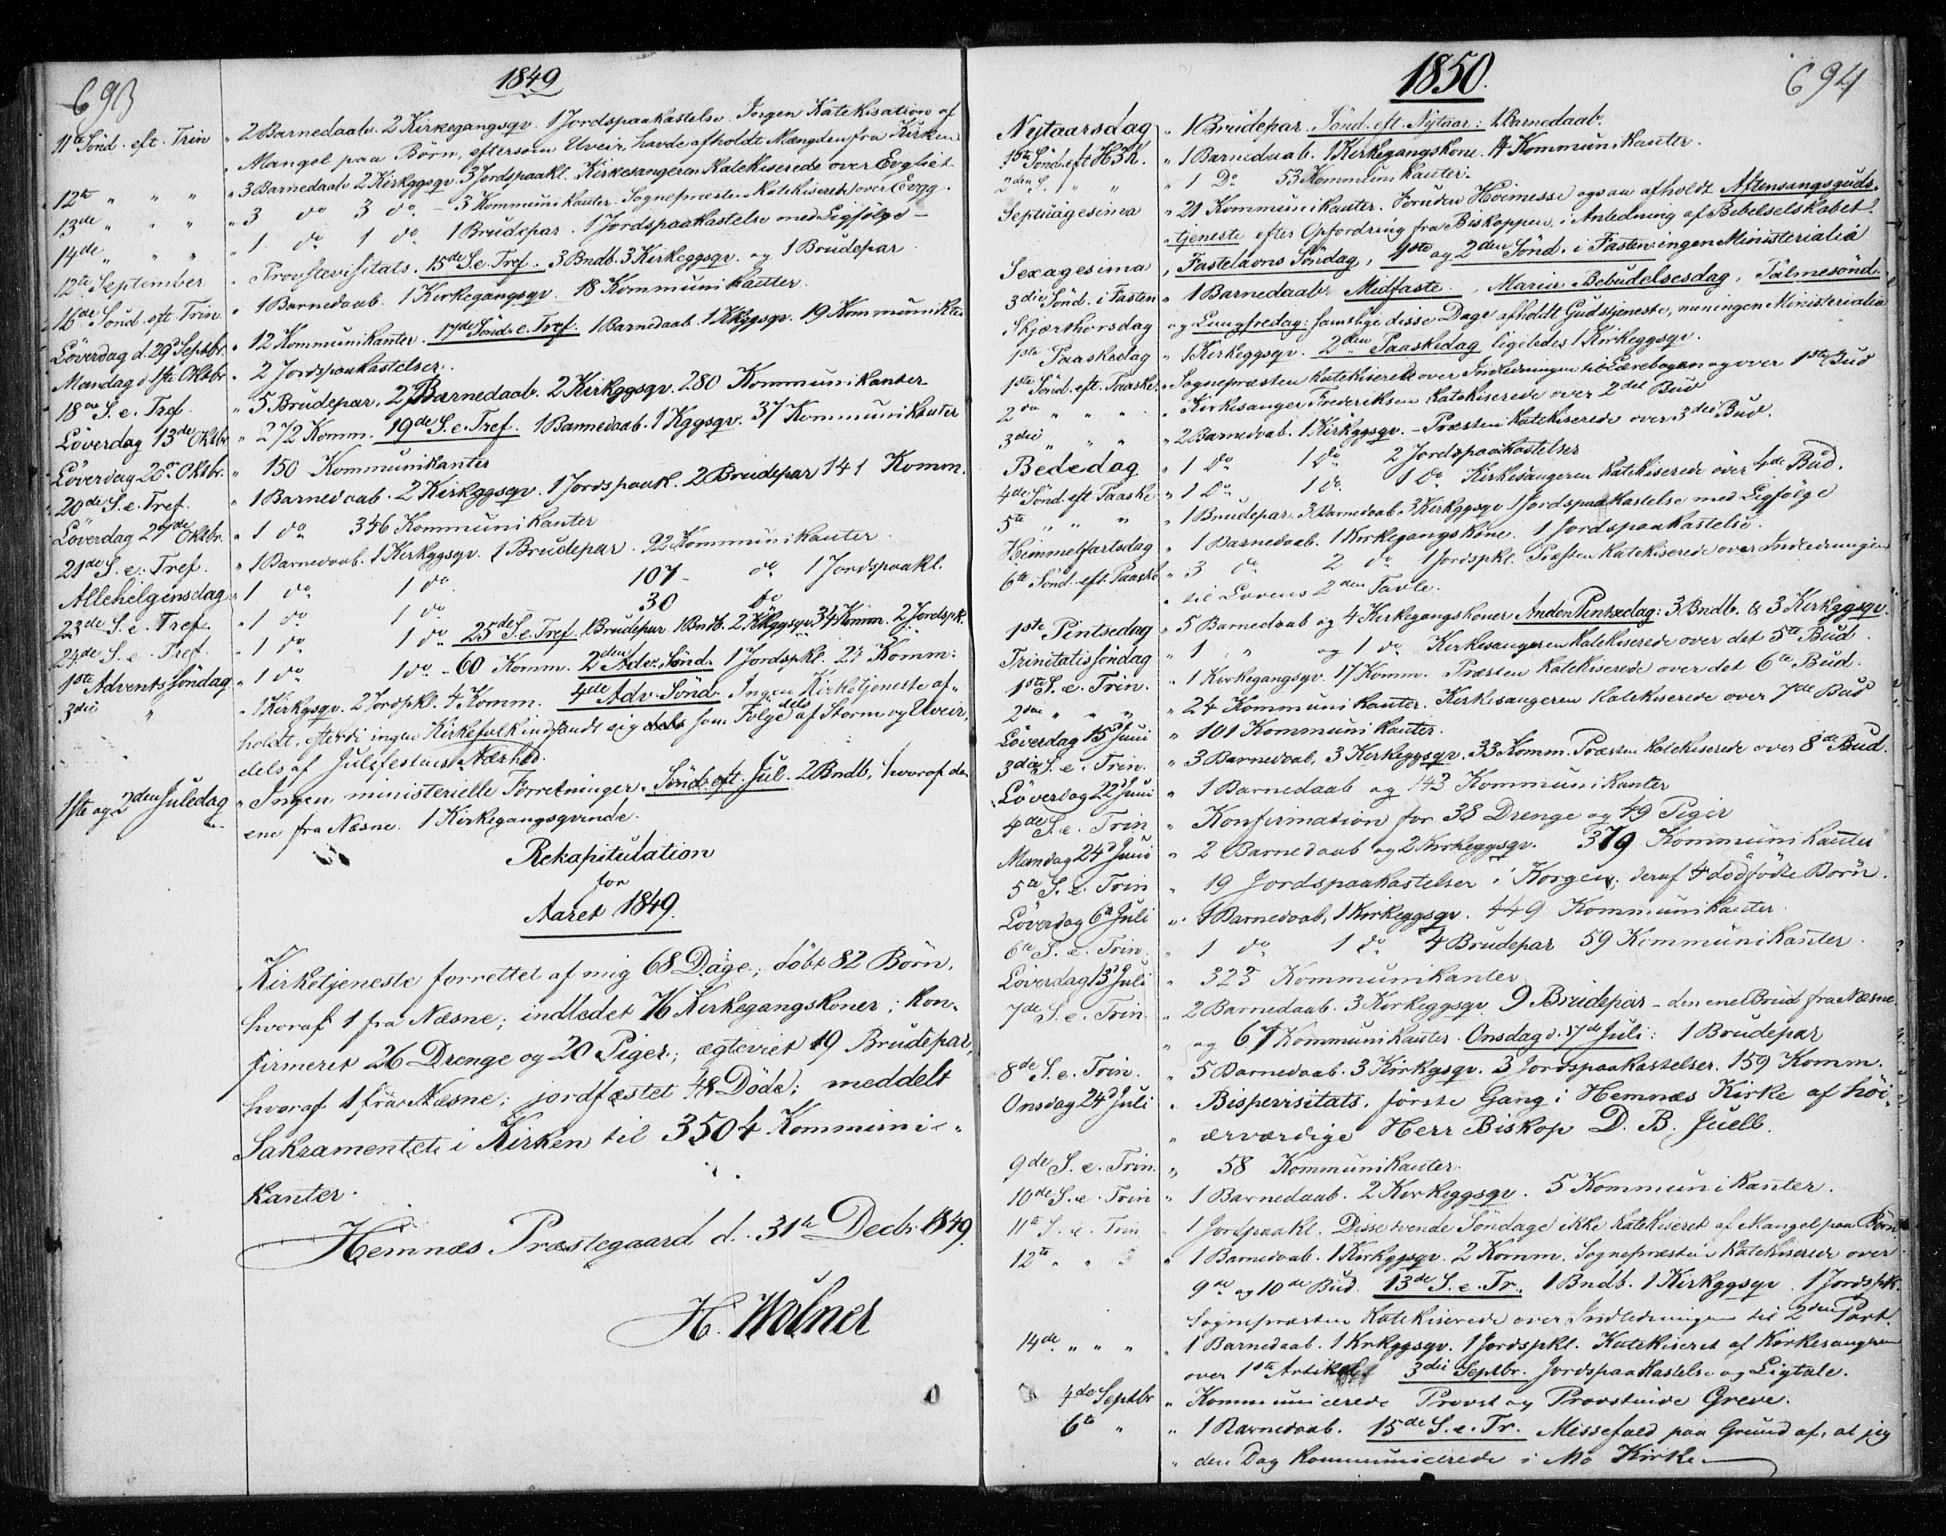 693
1849
11te Sönd. eft. Trin " 2 Barnedaab. 2 Kirkegangsqv. 1 Jordspaakastelse. Ingen Katekisation af
Mangel paa Börn, eftersom Uveir havde afholdt Mængden fra Kirken
12te " " " " 3 Barnedaab. 2 Kirkggsqv. 3 Jordspaakl. Kirkesangeren Katekiserede over Evgliet
13de " " " " 3 do 3 do - 3 Kommunikanter. Sognepræsten Katekiserede over Evgg.
14de " " " " 1 do 1 do 1 Brudepar. 1 Jordspaakastelse med Ligfölge -
12te September " Provstevisitats. 15de S. e. Tref. 3 Bndb. 3 Kirkeggsqv. og 1 Brudepar.
16de Sönd. eft Trin " 1 Barnedaab. 1 Kirkegangsqv. 18 Kommunikanter.
Löverdag d. 29d Septbr. " 12 Kommunikanter. 17de Sönd. e. Tref. 1 Barnedaab. 1 Kkggsqv. 19 Kommunikter
Mandag d 1ste Oktbr " 2 Jordspaakastelser.
18de S. e. Tref. " 5 Brudepar. 2 Barnedaab. 2 Kirkggsqv. 280 Kommunikanter
Löverdag 13de Oktbr " 272 Komm. 19de S. e. Tref. 1 Barnedaab. 1 Kggsqv. 37 Kommunikanter
Löverdag 20de Oktbr. " 150 Kommunikanter
20de S. e. Tref. " 1 Barnedaab. 2 Kirkggsqv. 1 Jordspaak. 2 Brudepar. 141 Komm.
Löverdag 27de Oktbr. " 1 do 346 Kommunikanter
21de S. e. Tref. " 1 Barnedaab. 1 Kirkggsqv. 1 Brudepar. 92 Kommunikanter.
Allehelgensdag " 1 do 1 do 107 - do 1 Jordspaakl.
23de S. e. Tref. " 1 do 1 do 30 do
24de S. e. Tref. " 1 do 1 do 25de S. e. Tref. 1 Brudepar. 1 Bndb. 2 Kkggsqv. 34 Komm. 2 Jordspk.
1ste Advents Söndag " 1 do 1 do - 60 Komm. 2den Adv. Sönd. 1 Jordspkl. 27 Komm:
3die " " 1 Kirkgsqv. 2 Jordspkl. 4 Komm. 4de Adv. Sönd. Ingen Kirketjeneste af-
holdt, efterdi ingen Kirkefolk indfandt sig dels som Fölge dels af Storm og Uveir,
dels af Julefestens Nærhed.
1ste og 2den Juledag " Ingen ministerielle Forretninger. Sönd. eft. Jul. 2 Bndb, hvoraf den
ene fra Næsne. 1 Kirkegangsqvinde.
Rekapitulation
for
Aaret 1849.
Kirketjeneste forrettet af mig 68 Dage; döbt 82 Börn,
hvoraf 1 fra Næsne; indledet 76 Kirkegangskoner; kon-
firmeret 26 Drenge og 20 Piger; ægteviet 19 Brudepar,
hvoraf 1 fra Næsne; jordfæstet 48 Döde; meddelt
Sakramentet i Kirken til 3504 Kommuni-
kanter.
Hemnæs Præstegaard d. 31te Decbr 1849.
H. Wolner
1850.
694
Nytaarsdag " 1 Brudepar. Sönd. eft. Nytaar: 1 Barnedaab.
1ste Sönd. eft H3K. " 1 Barnedaab. 1 Kirkegangskone. 4 Kommunikanter.
2den S. " " " 1 Do 53 Kommunikanter.
Septuagesima " 21 Kommunikanter. Foruden Höimesse ogsaa afholdt Aftensangsguds-
tjeneste efter Opfordring fra Biskoppen, i Anledning af Bibelselskabet.
Sexagesima " Fastelavns Söndag, 1ste og 2den Sönd. i Fasten ingen Ministerialia
3die Sönd. i Fasten " 1 Barnedaab. Midfaste, Mariæ Bebudelsesdag, Palmesönd.
Skjærthorsdag og Langfredag: samtlige disse Dage afholdt Gudstjeneste, men ingen Ministerialia
1ste Paaskedag " 1 Kirkeggsqv. 2den Paaskedag ligeledes 1 Kirkeggsqv.
1ste Sönd. eft. Paaske. " Sognepræsten katekiserede over Indledningen til Lærebogen og over 1ste Bud
2den " " " " Kirkesanger Frederiksen katekiserede over 2det Bud
3die " " " " 2 Barnedaab. 1 Kirkggsqv. - Præsten katekiserede over 3die Bud.
Bededag " 1 Do 1 Do 2 Jordspaakastelser
4de Sönd. eft Paaske " 1 Do 1 Do 1 Do Kirkesangeren katekiserede over 4de Bud.
5te " " " " 1 Brudepar. 3 Barnedaab. 3 Kirkggsqv 1 Jordspaakastelse med Ligfölge
Himmelfartsdag " 1 Barnedaab. 1 Kirkegangskone. 1 Jordspaakastelse.
6te Sönd. eft. Paaske " 3 do 2 do 1 Jordspkl. Præsten katekiserede over Indledningen
" til Lovens 2den Tavle.
1ste Pintsedag " 5 Barnedaab og 4 Kirkegangskoner Anden Pintsedag: 3 Bndb. & 3 Kirkggsqv.
Trinitatis Söndag " 1 " og 1 do Kirkesangeren katekiserede over det 5te Bud.
1ste S. e. Trin. " 1 Kirkegangsqv. 17 Komm. Præsten katekiserede over det 6te Bud.
2den " " " " 24 Kommunikanter. Kirkesangeren katekiserede over 7de Bud
Löverdag 15d Juni " 101 Kommunikanter.
3die S. e. Trin. " 3 Barnedaab, 3 Kirkeggsqv. 33 Komm. Præsten katekiserede over 8de Bud.
Löverdag 22d Juni " 1 Barnedaab og 143 Kommunikanter
4de S. e. Trin " Konfirmation for 38 Drenge og 49 Piger
Mandag 24d Juni " 2 Barnedaab og 2 Kirkeggsqv. 379 Kommunikanter
5te S. e. Trin " 19 Jordspaakastelser i Korgen; deraf 4 dödfödte Börn.
Löverdag 6te Juli " 1 Barnedaab, 1 Kirkeggsqv. 449 Kommunikanter.
6te S. e. Trin. " 1 do 1 do 4 Brudepar 59 Kommunikanter.
Löverdag 13d Juli " 323 Kommunikanter
7de S. e. Trin " 2 Barnedaab. 3 Kirkeggsqv. 9 Brudepar - den ene Brud fra Næsne,
" og 67 Kommunikanter. Onsdag d. 17de Juli: 1 Brudepar
8de S. e. Trin. " 5 Barnedaab. 3 Kirkgsqv. 3 Jordspaakastelser. 159 Komm.
Onsdag 24d Juli " Bispevisitats, förste Gang i Hemnæs Kirke af höi-
" ærværdige Herr Biskop D. B. Juell.
9de S. e. Trin. " 58 Kommunikanter.
10de S. e. Trin " 1 Barnedaab. 2 Kirkeggsqv. 5 Kommunikanter.
11te S. e. Trin " 1 Jordspaakl. Disse tvende Söndage ikke katekiseret af Mangel paa Börn
12te " " " " 1 Barnedaab. 1 Kirkggsqv. 2 Komm. Sognepræsten katekiserede over
9de og 10de Bud. 13de S. e. Tr. 1 Bndb. 1 Kirkggsqv. 1 Jordspk.
Sognepræsten katekiserede over Indledningen til 2den Part.
14de " " " " 1 Barnedaab. 1 Krkggsqv. 1 Jordspkl. Katekiseret af Kirkesangeren
over 1ste Artikel 3die Septbr. Jordspaakastelse og Ligtale.
4de Septbr " Kommunicerede Provst og Provstinde Greve.
6te " " 1 Barnedaab. 15de S. e. Tr. Messefald paa Grund af, at jeg
" den Dag kommunicerede i Mo Kirke